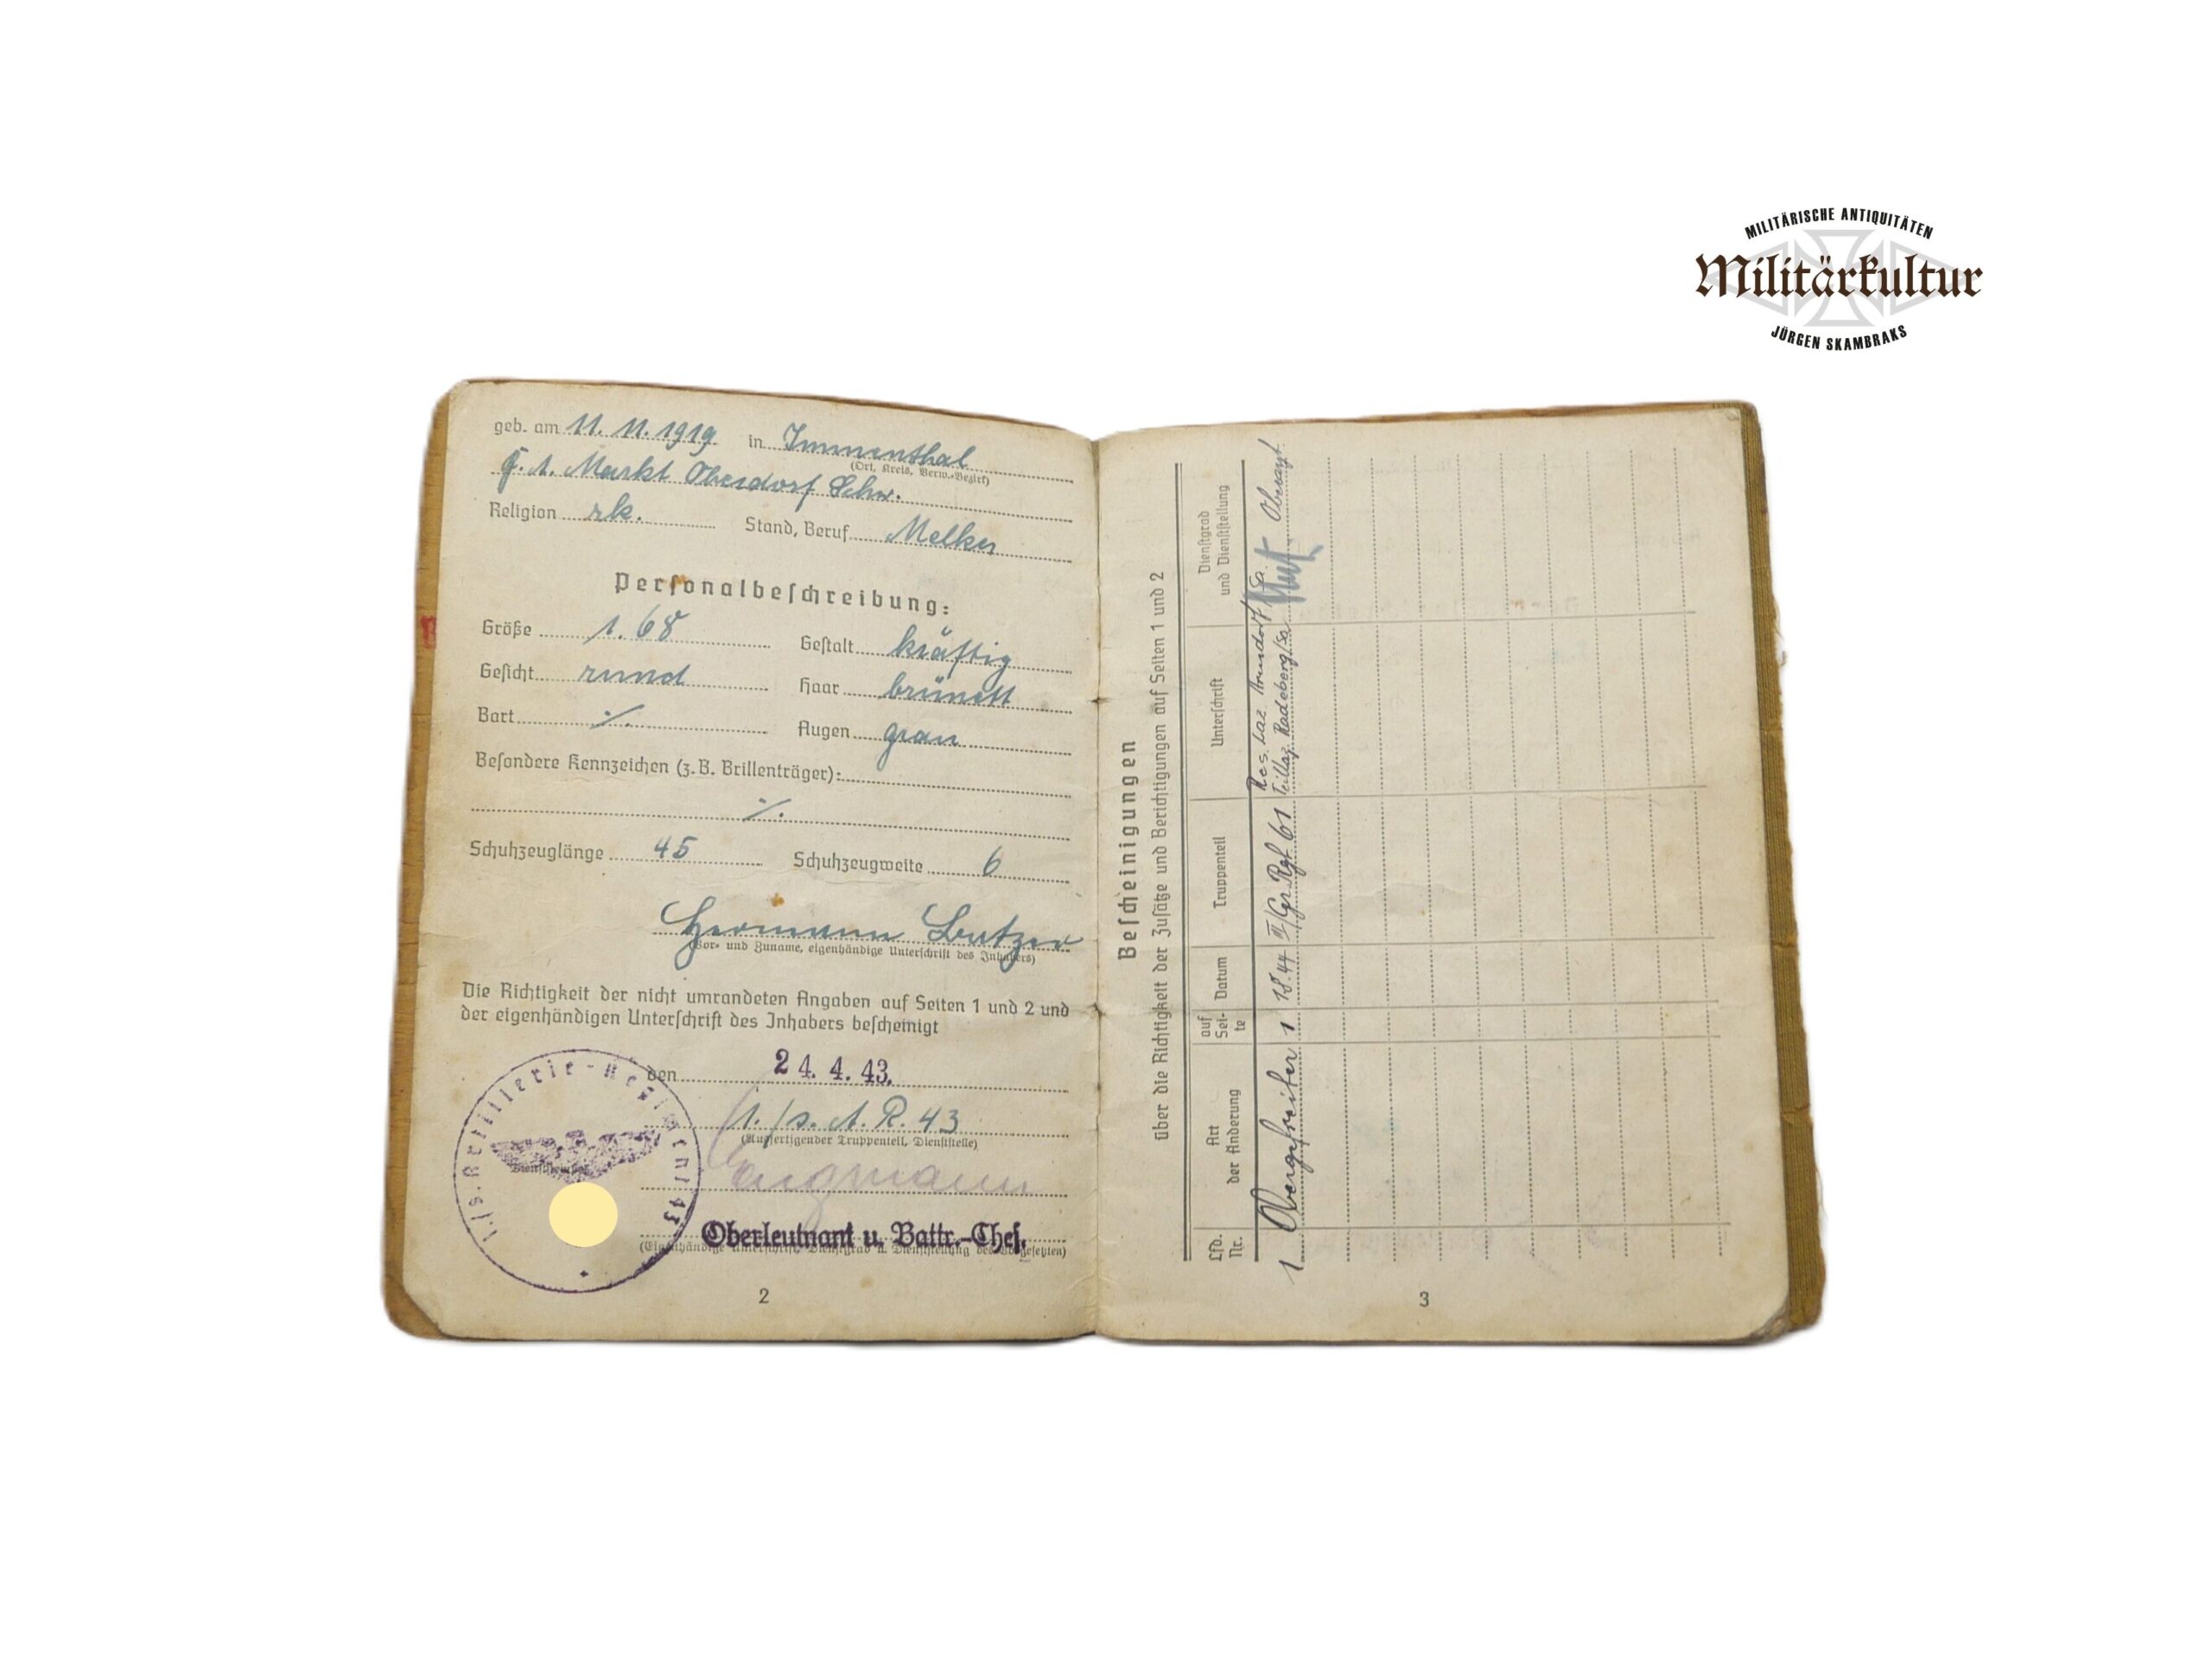 MILITÄRISCHE ANTIQUITÄTEN
Militärkultur
JÜRGEN SKAMBRAKS
geb. am 11. 11. 1919 in Immenthal
(Ort, Kreis, Verw.-Bezirk)
Markt Oberdorf Schw.
Religion rk. Stand, Beruf Melker
Perſonalbeſchreibung:
Größe 1.68 Geſtalt kräftig
Geſicht rund Haar brünett
Bart ⁒ Augen grau
Beſondere Kennzeichen (z.B. Brillenträger):
⁒
Schuhzeuglänge 45 Schuhzeugweite 6
Hermann
(Vor- und Zuname, eigenhändige Unterſchrift des Inhabers)
Die Richtigkeit der nicht umrandeten Angaben auf Seiten 1 und 2 und
der eigenhändigen Unterſchrift des Inhabers beſcheinigt
den 24. 4. 43.
1./s. A. R. 43
(Ausfertigender Truppenteil, Dienſtſtelle)
Oberleutnant u. Battr.-Chef.
(Eigenhändige Unterſchrift, Dienſtgrad u. Dienſtſtellung des Vorgeſetzten)
1./s. Artillerie-Regiment 43
Dienſtſtempel
2
Beſcheinigungen
über die Richtigkeit der Zuſätze und Berichtigungen auf Seiten 1 und 2
Lfd. Nr. Art der Änderung auf Sei-te Datum Truppenteil Unterſchrift Dienſtgrad und Dienſtſtellung
1 Obergefreiter 1 Gr. Rgt. 61 Res. Laz. Arnsdorf/Sa.
Teillaz. Radeberg/Sa. Oberarzt
3